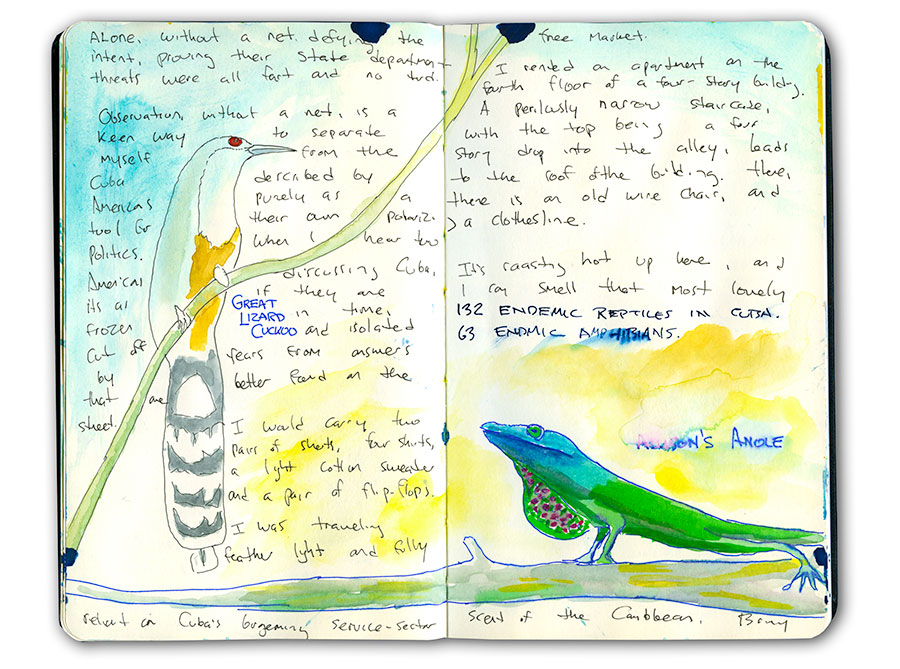 ALONE, without a net. defying the
intent, proving their State department
threats were all fart and no turd.
Observation, without a net, is a
Keen way to separate
myself from the
Cuba described by
Americas purely as a
tool for their own polariz.
Politics. When I hear two
Americas discussing Cuba,
its as if they are
GREAT
LIZARD
CUCKOO
frozen in time,
and isolated
Cut off fears from answers
by better found on the
that are
street.
I would carry two
pair of shorts, four shirts,
a light cotton sweater
and a pair of flip-flops.
I was traveling
feather light and fully
reliant on Cuba's service-sector
free market.
I rented an apartment on the
fourth floor of a four-story building.
A perilously narrow staircase,
with the top being a four
story drop into the alley, leads
to the roof of the building. There,
there is an old wire chair, and
a clothesline.
It's roasting hot up here, and
I can smell that most lovely
132 ENDEMIC REPTILES IN CUBA.
63 ENDMIC AMPHIBIANS.
ALLISON'S ANOLE
scent of the Caribbean. Briny